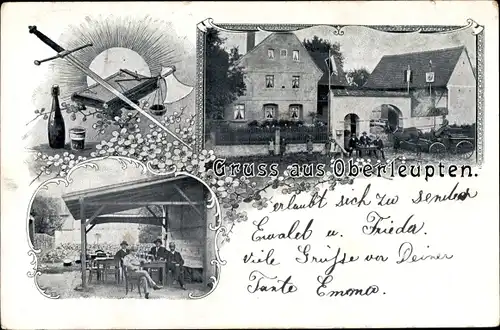 Gruss aus Oberleupten.
erlaubt sich zu senden
Ewald u. Frieda.
viele Grüße von Deiner
Tante Emma.